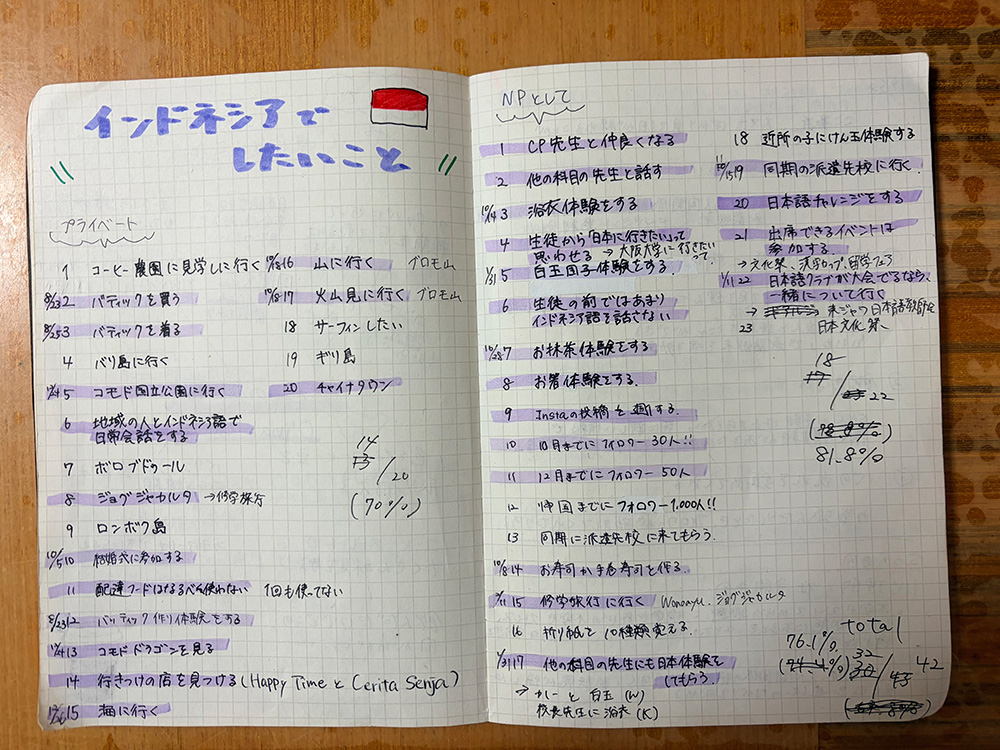 インドネシアで
したいこと
プライベート
1 コーヒー農園に見学しに行く
8/23 2 バティックを買う
8/25 3 バティックを着る
4 バリ島に行く
12/4 5 コモド国立公園に行く
6 地域の人とインドネシア語で
日常会話をする
7 ボロブドゥール
8 ジョグジャカルタ →修学旅行
9 ロンボク島
10/5 10 結婚式に参加する
11 配達フードはなるべく使わない 1回も使ってない
8/23 12 バティック作り体験をする
12/4 13 コモドドラゴンを見る
14 行きつけの店を見つける(Happy TimeとCerita Senja)
15 海に行く
10/8 16 山に行く ブロモ山
10/8 17 火山見に行く ブロモ山
18 サーフィンしたい
19 ギリ島
20 チャイナタウン
14
/20
(70%)
NPとして
1 CP先生と仲良くなる
2 他の科目の先生と話す
3 浴衣体験をする
4 生徒から「日本に行きたい」って
思わせる →大阪大学に行きたい
って、
1/31 5 白玉団子体験をする。
6 生徒の前ではあまり
インドネシア語を話さない
10/28 7 お抹茶体験をする
8 お箸体験をする。
9 Instaの投稿を週1する。
10 10月までにフォロワー30人!!
11 12月までにフォロワー50人
12 帰国までにフォロワー1,000人!!
13 同期に派遣先校に来てもらう。
10/8 14 お寿司か手巻寿司を作る。
15 修学旅行に行く Wonoayu、ジョグジャカルタ
16 折り紙を10種類覚える。
1/31 17 他の科目の先生にも日本体験を
してもらう
→カレーと白玉(W)
校長先生に浴衣(K)
18 近所の子にけん玉体験する
19 同期の派遣先校に行く。
20 日本語チャレンジをする
21 出席できるイベントは
参加する
→文化祭、漢字カップ、留学フェア
1/11 22 日本語クラブが大会でるなら、
一緒について行く
→ 東ジャワ日本語教師会
23 日本文化祭、
18
/ 22
81.8%
total
76.1%
32
/ 42